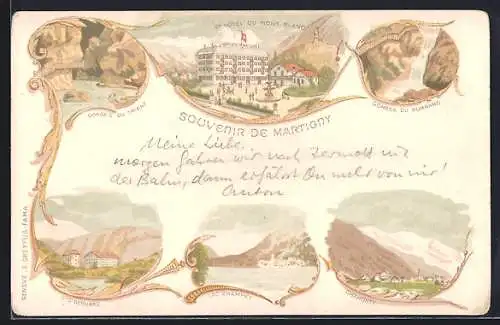 Gd HOTEL DU MONT-BLANC
GORGES DU TRIENT
GORGES DU DURNAND
SOUVENIR DE MARTIGNY
Meine Liebe.
morgen fahren wir nach Zermatt mit
der Bahn, dann erfährst Du mehr von mir!
Anton
LAC CHAMPEX
GENÈVE. E. DREYFUS-FAMA